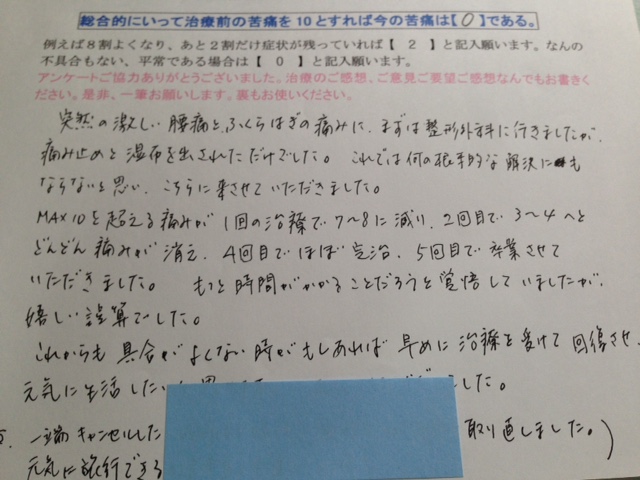 総合的にいって治療前の苦痛を10とすれば今の苦痛は【 0 】である。
例えば8割よくなり、あと2割だけ症状が残っていれば【 2 】と記入願います。なんの
不具合もない、平常である場合は【 0 】と記入願います。
アンケートご協力ありがとうございました。治療のご感想、ご意見ご要望ご感想なんでもお書きく
ださい。是非、一筆お願いします。裏もお使いください。
突然の激しい腰痛と、ふくらはぎの痛みに、まずは整形外科に行きましたが、
痛み止めと湿布を出されただけでした。これでは何の根本的な解決にも
ならないと思い、こちらに来させていただきました。
MAX10を超える痛みが1回の治療で7〜8に減り、2回目で3〜4へと
どんどん痛みが消え、4回目でほぼ完治、5回目で卒業させて
いただきました。もっと時間がかかることだろうと覚悟していましたが、
嬉しい誤算でした。
これからも具合がよくない時がもしあれば早めに治療を受けて回復させ、
元気に生活したいと思 した。
一端キャンセルした 取り直しました。)
元気に旅行できる